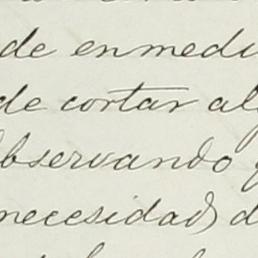 de enmedi
de cortar al
observando
necesidad d